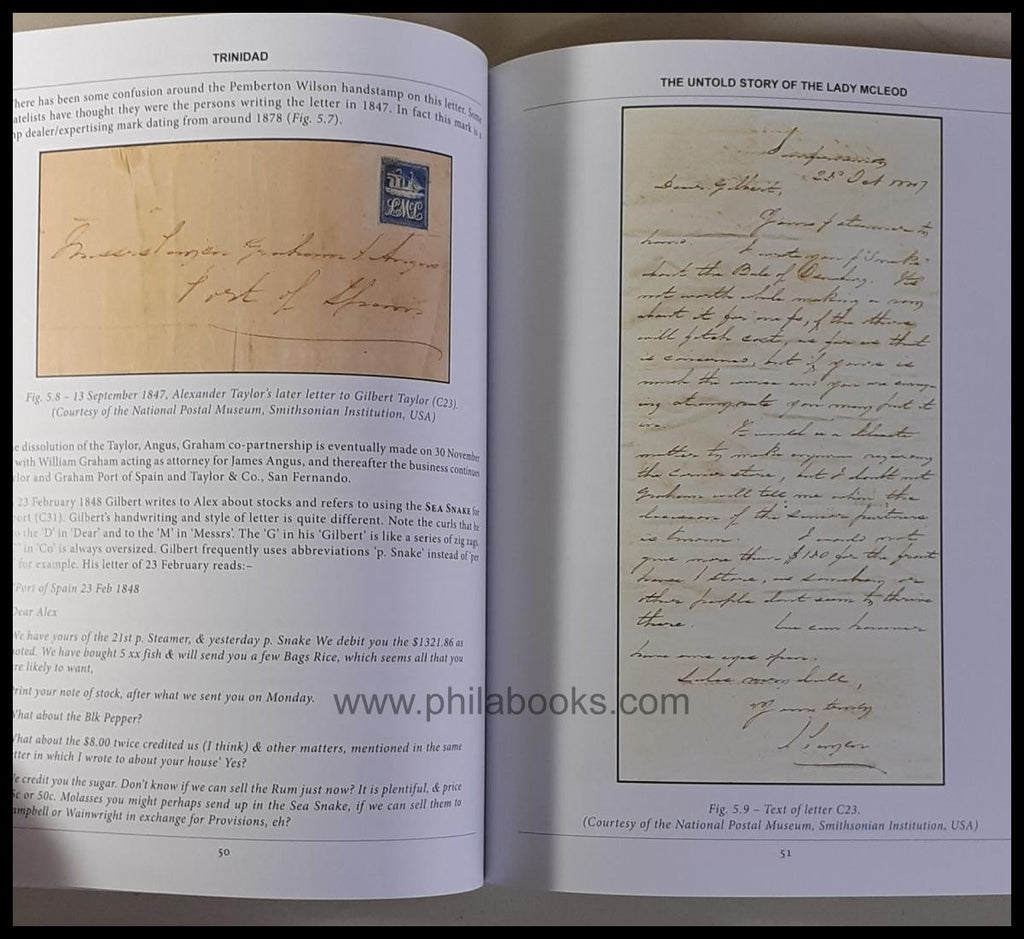 TRINIDAD
here has been some confusion around the Pemberton Wilson handstamp on this letter. Some
atelists have thought they were the persons writing the letter in 1847. In fact this mark is a
p dealer/expertising mark dating from around 1878 (Fig. 5.7).
LMcL
Graham & Angus
Port of Spain
Fig. 5.8 – 13 September 1847, Alexander Taylor's later letter to Gilbert Taylor (C23).
(Courtesy of the National Postal Museum, Smithsonian Institution, USA)
e dissolution of the Taylor, Angus, Graham co-partnership is eventually made on 30 November
with William Graham acting as attorney for James Angus, and thereafter the business continues
lor and Graham Port of Spain and Taylor & Co., San Fernando.
23 February 1848 Gilbert writes to Alex about stocks and refers to using the SEA SNAKE for
ort (C31). Gilbert's handwriting and style of letter is quite different. Note the curls that he
the 'D' in 'Dear' and to the 'M' in 'Messrs'. The 'G' in his 'Gilbert' is like a series of zig zags.
in 'Co' is always oversized. Gilbert frequently uses abbreviations 'p. Snake' instead of 'per
for example. His letter of 23 February reads:–
Port of Spain 23 Feb 1848
Dear Alex
We have yours of the 21st p. Steamer, & yesterday p. Snake We debit you the $1321.86 as
oted. We have bought 5 xx fish & will send you a few Bags Rice, which seems all that you
re likely to want,
rint your note of stock, after what we sent you on Monday.
What about the Blk Pepper?
What about the $8.00 twice credited us (I think) & other matters, mentioned in the same
tter in which I wrote to about your house' Yes?
e credit you the sugar. Don't know if we can sell the Rum just now? It is plentiful, & price
5c or 50c. Molasses you might perhaps send up in the Sea Snake, if we can sell them to
mpbell or Wainwright in exchange for Provisions, eh?
50
THE UNTOLD STORY OF THE LADY MCLEOD
Oct 1847
Dear Gilbert,
Yours p steamer to
hand. I wrote you p "Snake"
about the Bale of
not worth while making a
about it for
will fetch cost, as far as that
is concerned, but if yours is
much the worse and you are
ing at any rate you may put it
in.
It would be a delicate
matter to make enquiries regarding
the corner store, but I doubt not
Graham will tell me when the
decision of the senior partners
is known. I would not
give more than $130 for the front
house & store, as somehow or
other people dont seem to thrive
there. We can however
have our eyes open.
Sales very dull,
Yours truly
Fig. 5.9 – Text of letter C23.
(Courtesy of the National Postal Museum, Smithsonian Institution, USA)
51
www.philabooks.com